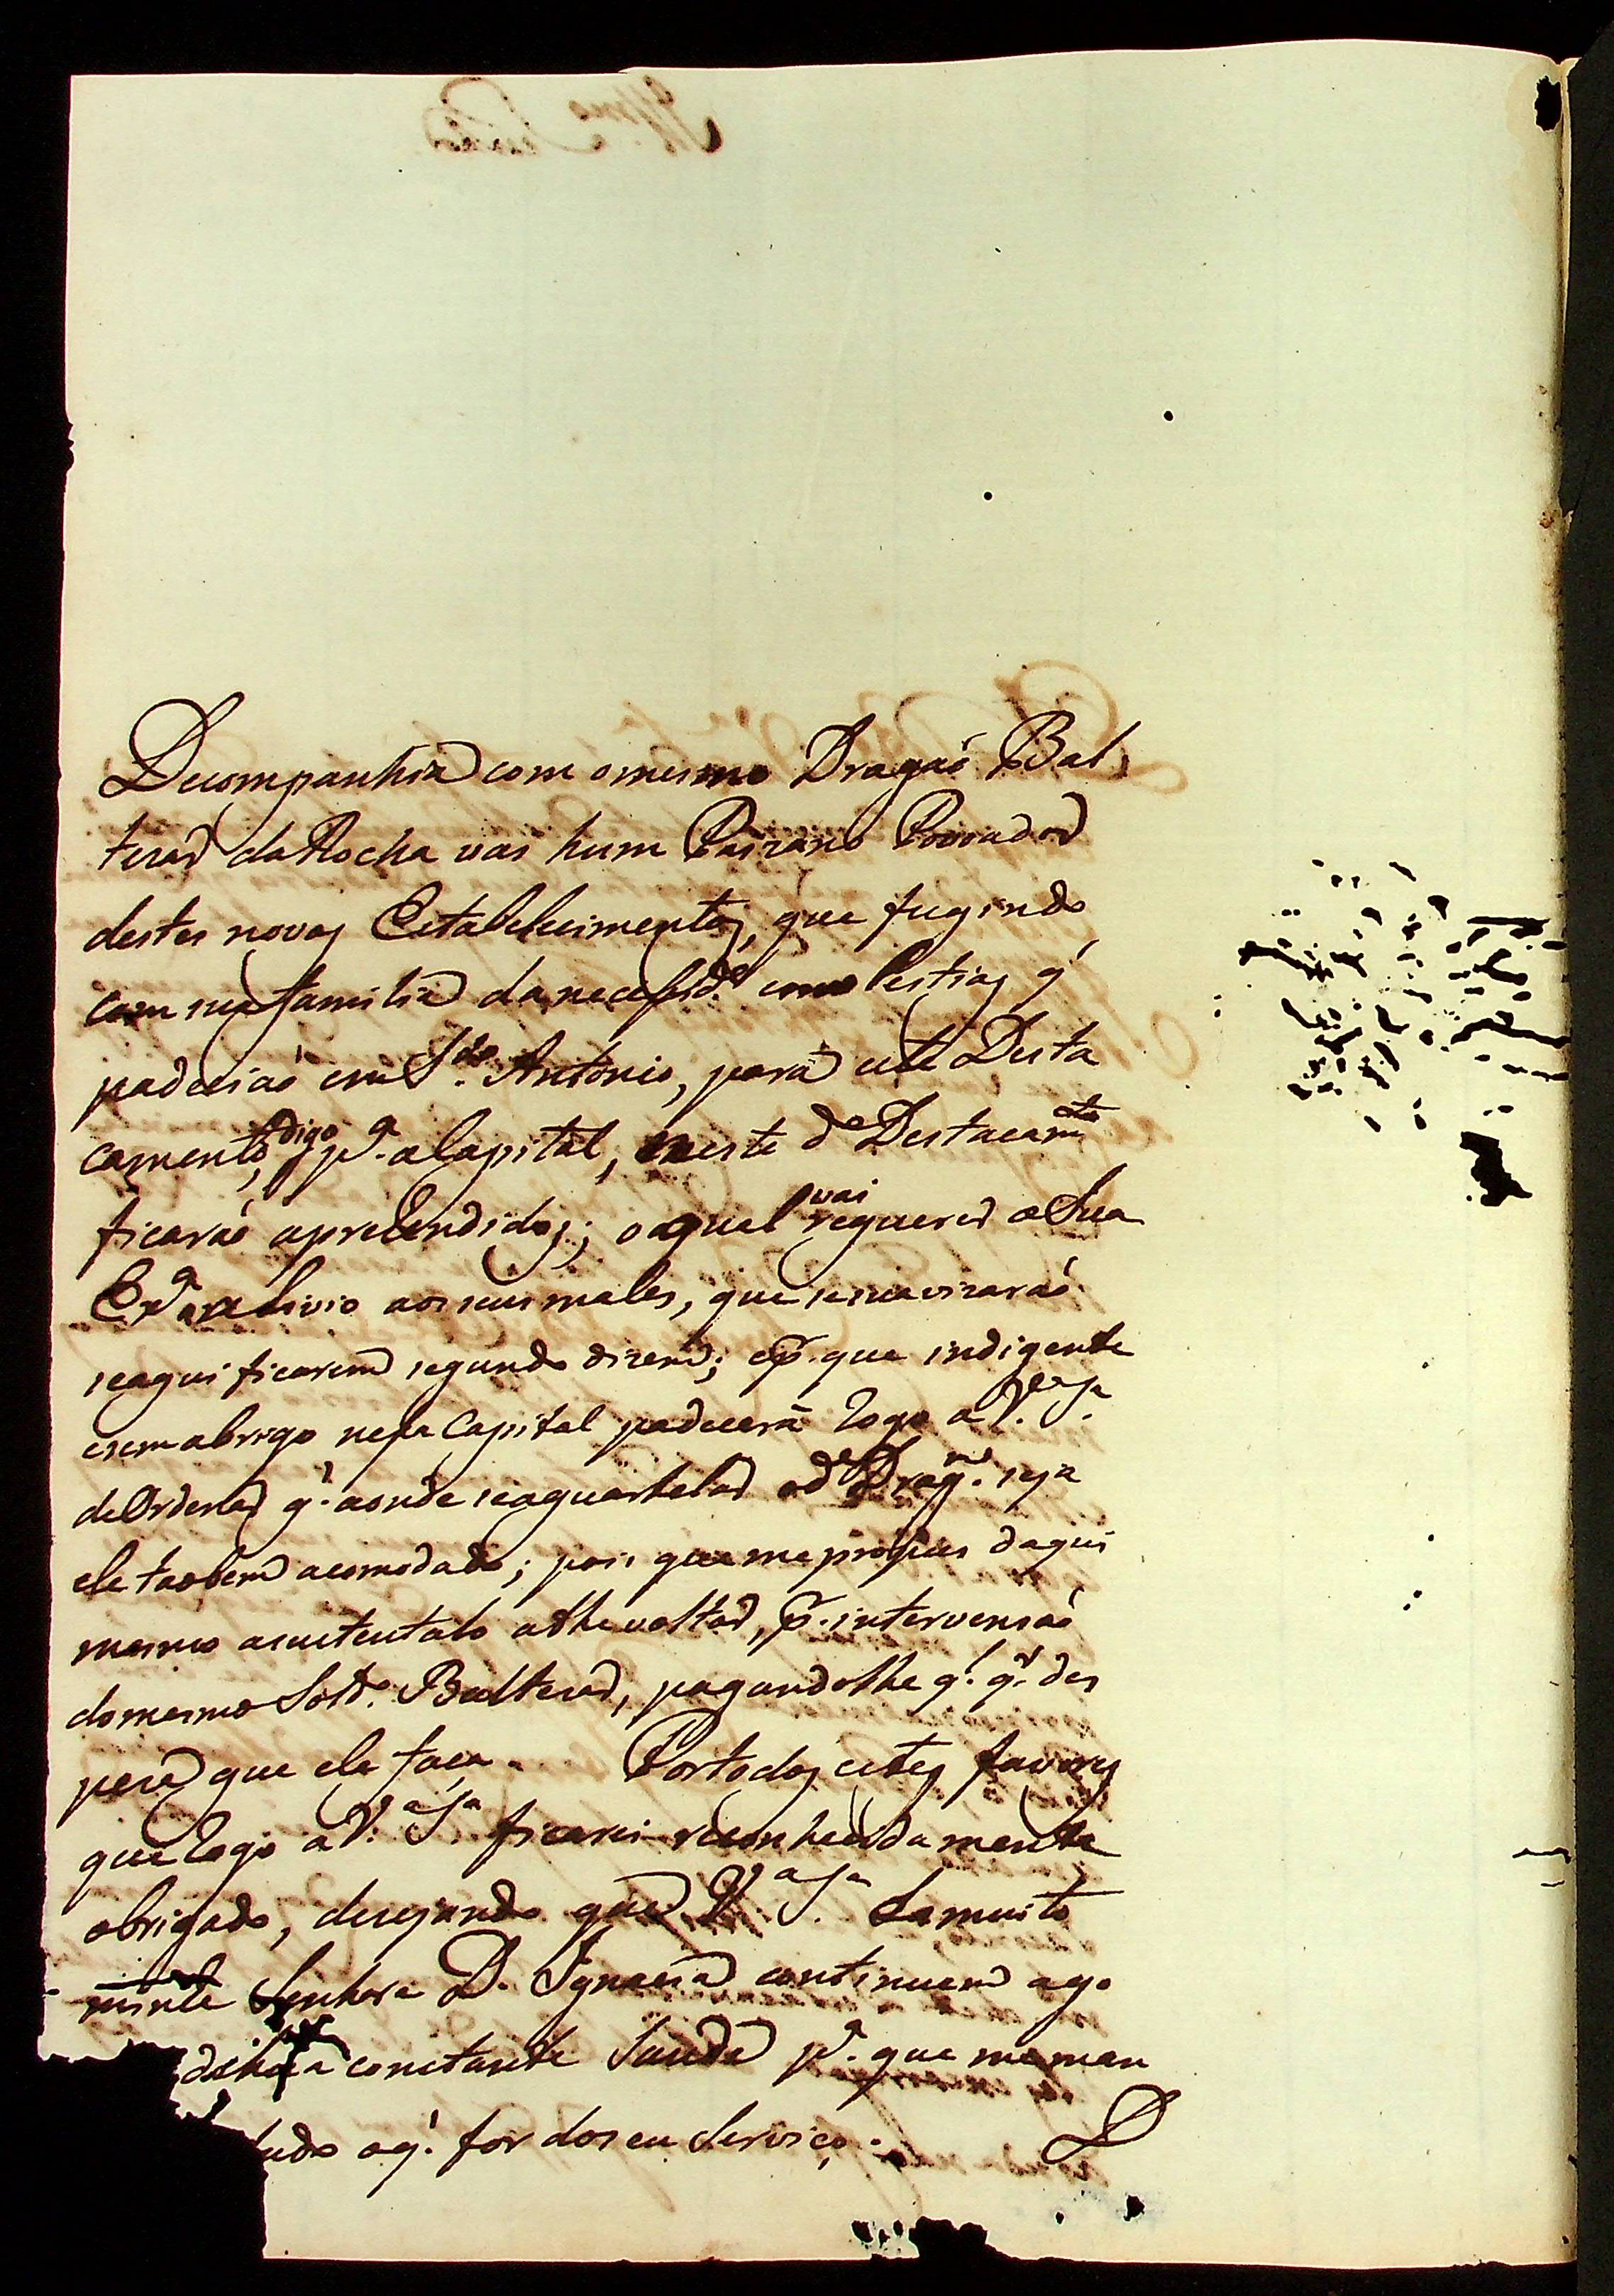 Decompanhia com omesmo Dragaõ Bal
tezar daRocha vai hum Paizano Povoador
destes novos Estabelecimentos, que fugindo
com sua familia da necessid.e e molestias q'
padeciaõ em S.to Antonio, para este Desta
camento, digo p.a a Capital, neste d.o Destacam.to
ficaraõ aprehendidos; o qual vai requerer a Sua
Ex.a o alivio aos seus males, que se suavizaraõ
seaqui ficarem segundo dizem; e p.r que indigente
esem abrigo nessa Capital padecerá Rogo a V. S.a
deOrdenar q' aonde seaquartelar o d.o Drag.m seja
ele taobem acomodado; pois que me propus daqui
mesmo asustentalo athe voltar, p.r intervensaõ
domesmo Sold.o Baltezar, pagandolhe q.l q.r des
peza que ele faça. Portodos estes favores
que Rogo a V.a S.a ficarei reconhecidamente
obrigado, desejando que V.a S.a Eamuito
Senhora D. Ignacia continuem ago
constante Saude p.a que me man
tudo oq' for doseu Serviço. D